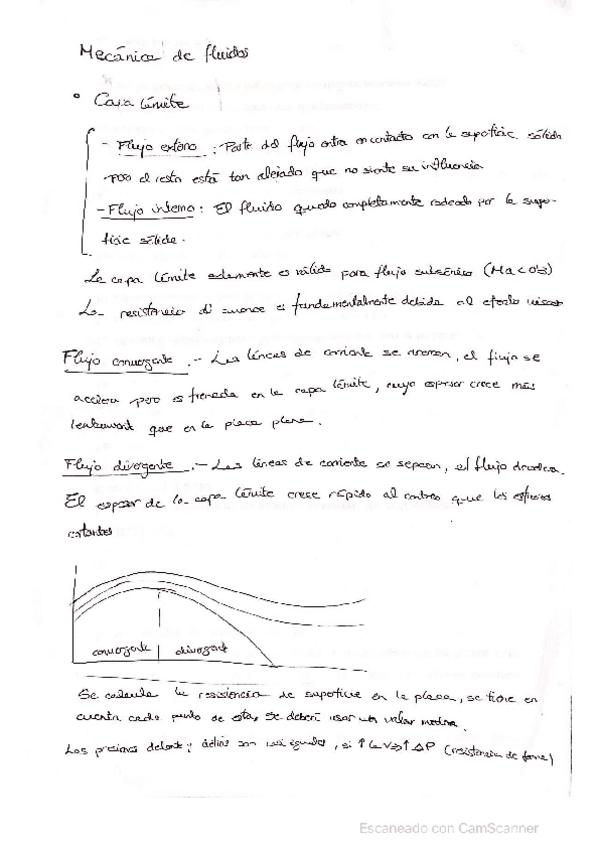 Mecánica de fluidos
° Capa límite
- Flujo externo : Parte del flujo entra en contacto con la superficie sólida
pero el resto está tan alejado que no siente su influencia
- Flujo interno : El fluido queda completamente rodeado por la supe-
ficie sólida.
La capa límite solamente es válida para flujo subsónico (Ma<0'3)
La resistencia al avance es fundamentalmente debida al efecto viscoso
Flujo convergente .- Las líneas de corriente se , el flujo se
acelera pero es frenado en la capa límite, cuyo espesor crece más
lentamente que en la placa plana.
Flujo divergente .- Las líneas de corriente se separan, el flujo
El espesor de la capa límite crece rápido al contrario que los esfuerzos
cortantes
convergente divergente
Se calcula la resistencia de superficie en la placa, se tiene en
cuenta cada punto de esta, se deberá usar un valor
Las presiones delante y detrás son casi iguales, si ↑ la V ⇒ ↑ ΔP (resistencia de forma)
Escaneado con CamScanner